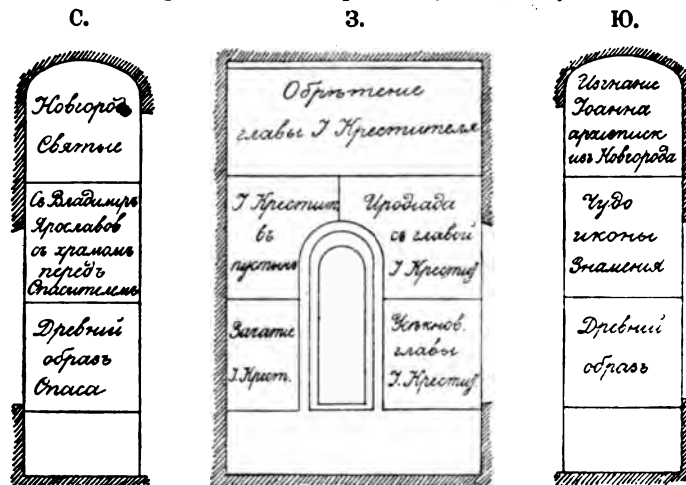 С.
З.
Ю.
Новгород
Святые
Св Владимиръ
Ярославов
съ храмомъ
передъ
Спасителемъ
Древний
образъ
Спаса
Обрѣтение
главы I Крестителя
I Крестит
въ
пустынѣ
Иродіада
съ главой
I Крестит
Зачатие
I. Крест.
Усѣкнов.
главы
I. Крестит
Изгнание
Іоанна
архіеписк
изъ Новгорода
Чудо
иконы
Знамения
Древний
образъ